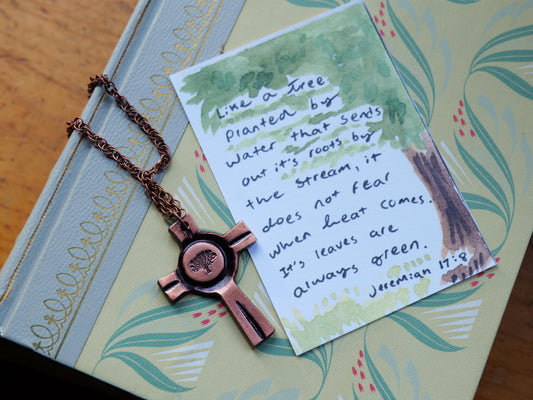 Like a Tree
Planted by
Water that sends
out it's roots by
the stream, it
does not fear
when heat comes.
It's leaves are
always green.
Jeremiah 17:8